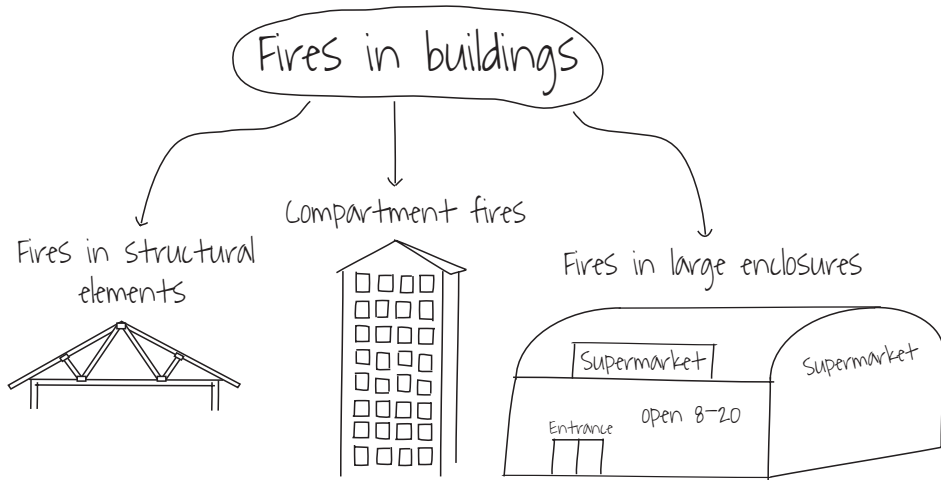 Fires in buildings
Fires in structural
elements
Compartment fires
Fires in large enclosures
Supermarket
Supermarket
open 8-20
Entrance